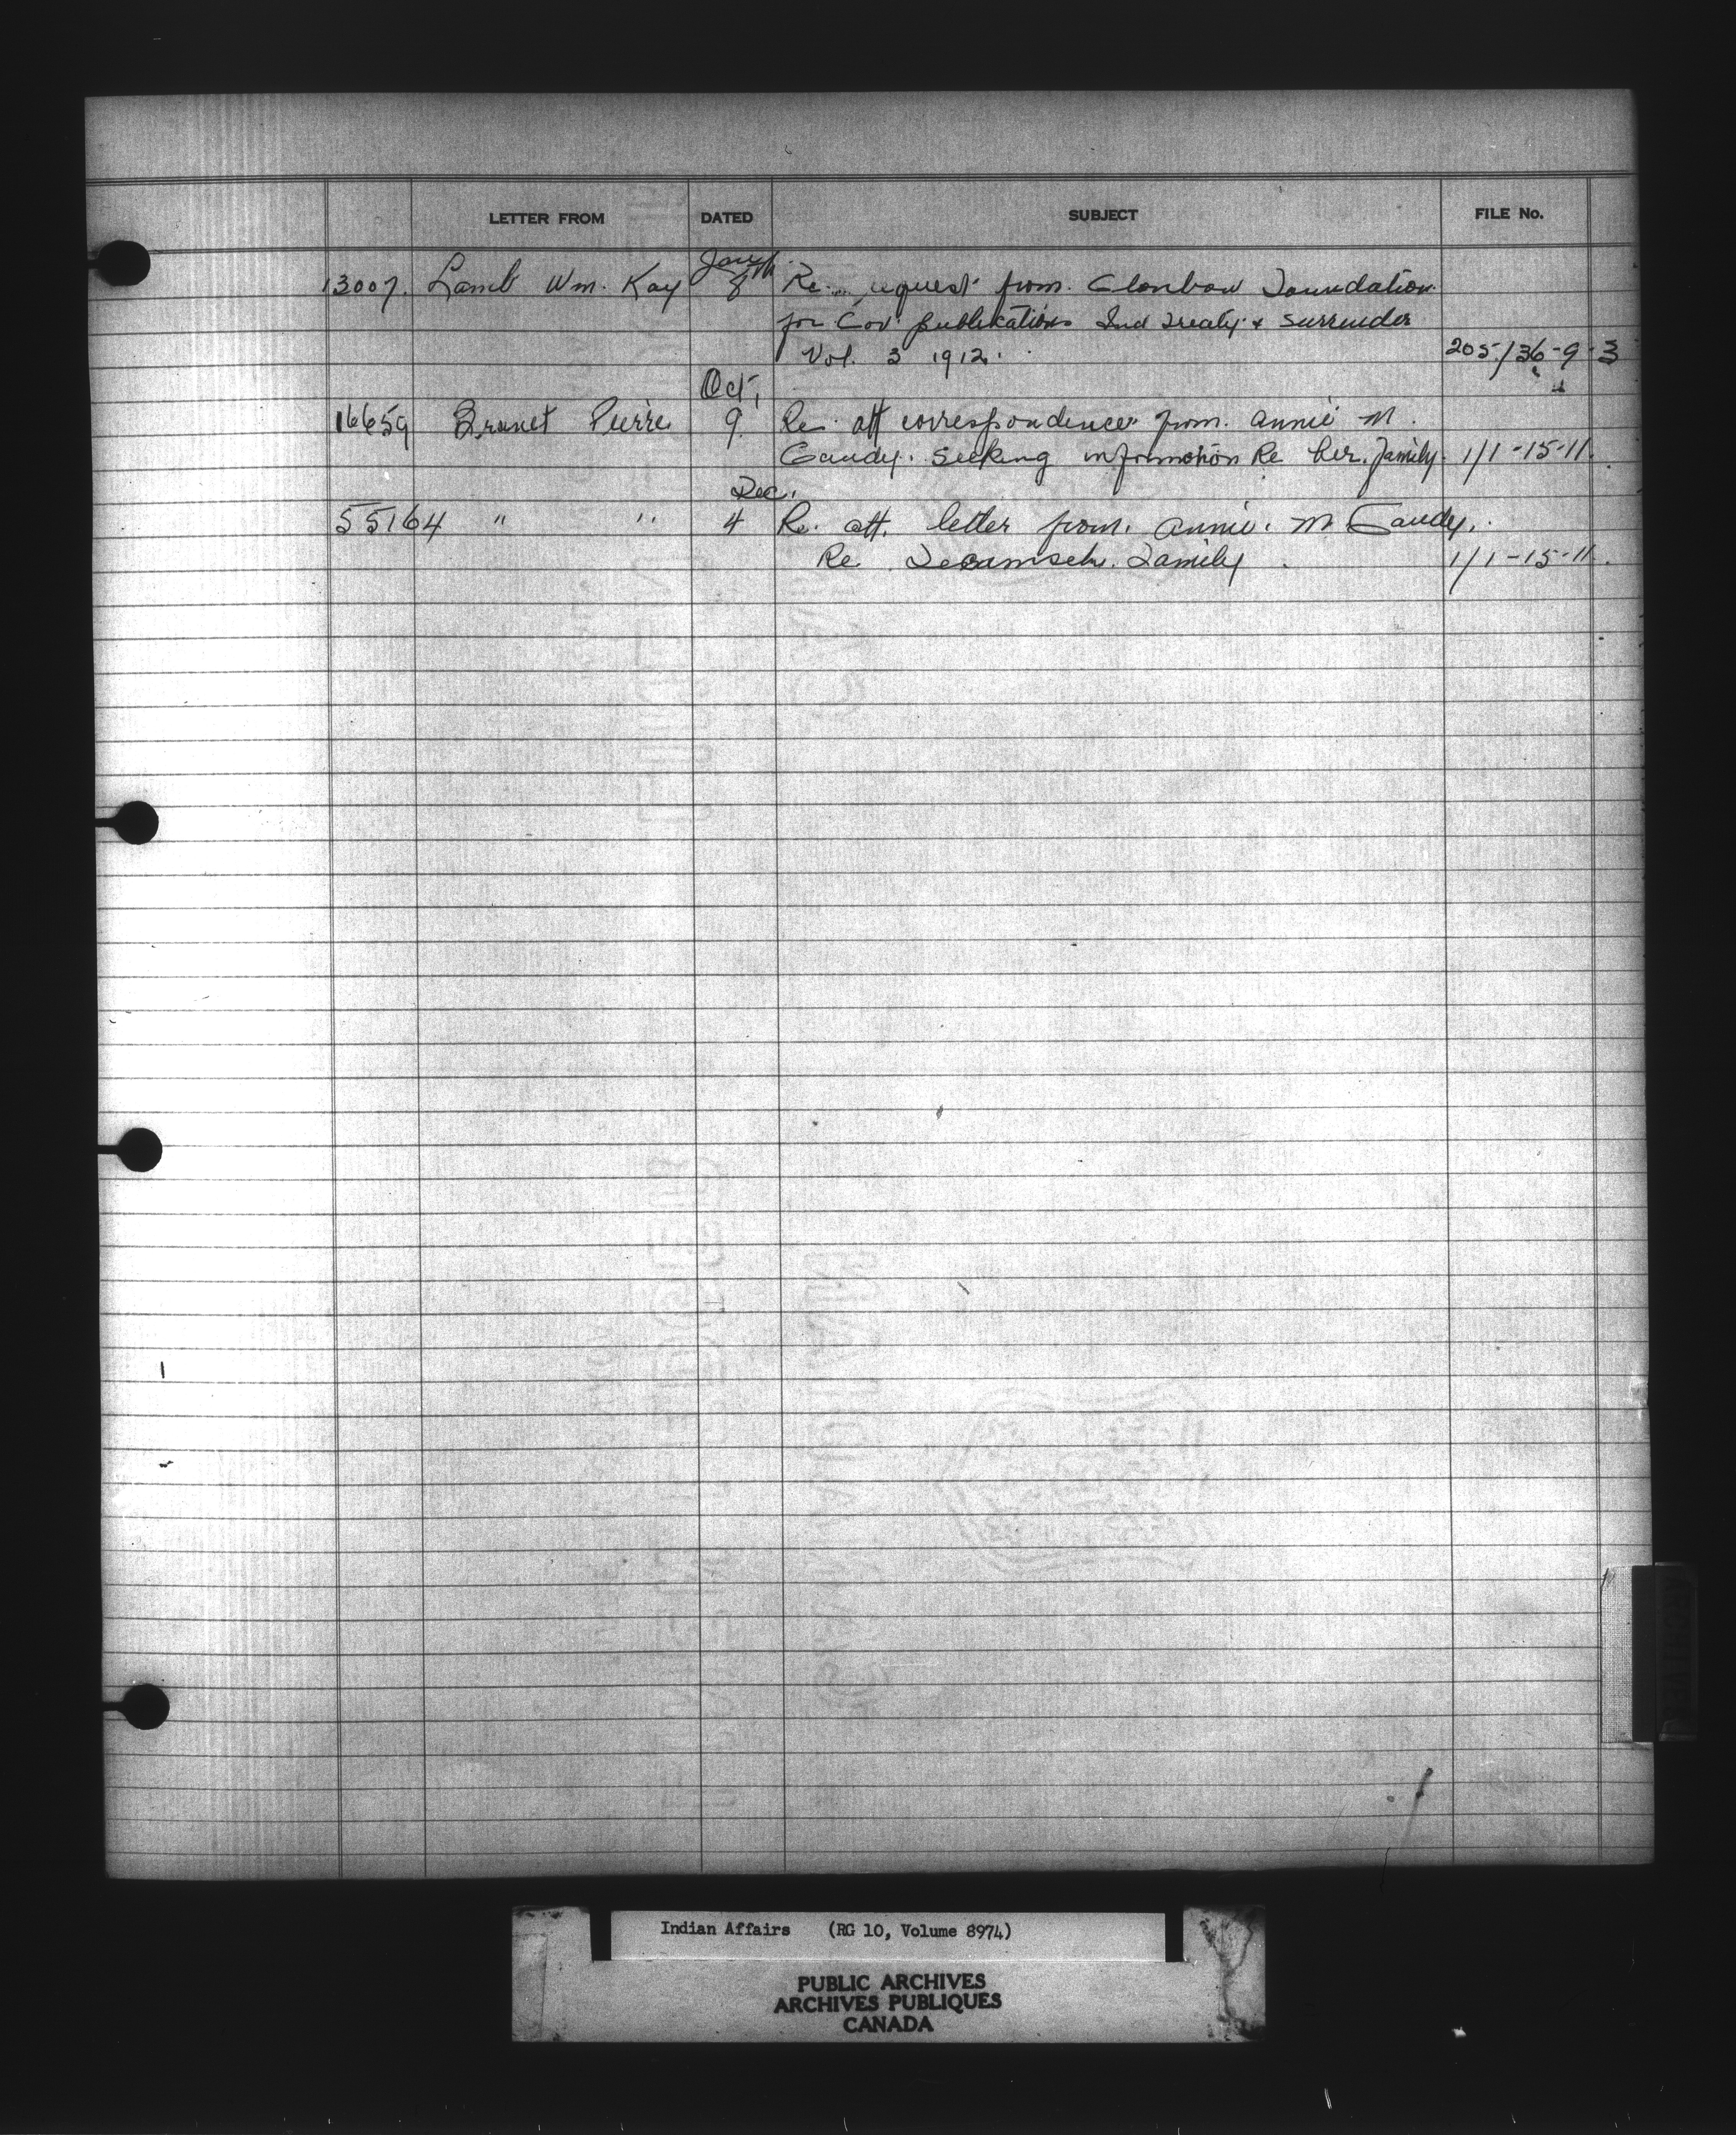 LETTER FROM DATED SUBJECT FILE No.
Jan
13007. Lamb Wm. Kay 8th Re. request from. Glenbow Foundation
for Gov. publications Ind Treaty & Surrender
Vol. 3 1912. 205/36-9-3
Oct,
16659 Brunet Pierre 9. Re. att correspondence from. Annie M.
Gaudy. Seeking information Re her. family. 1/1-15-11.
Dec.
55164 " " 4 Re. att. letter from. Annie. M. Gaudy.
Re Tecumseh. Family 1/1-15-11.
Indian Affairs (RG 10, Volume 8974)
PUBLIC ARCHIVES
ARCHIVES PUBLIQUES
CANADA